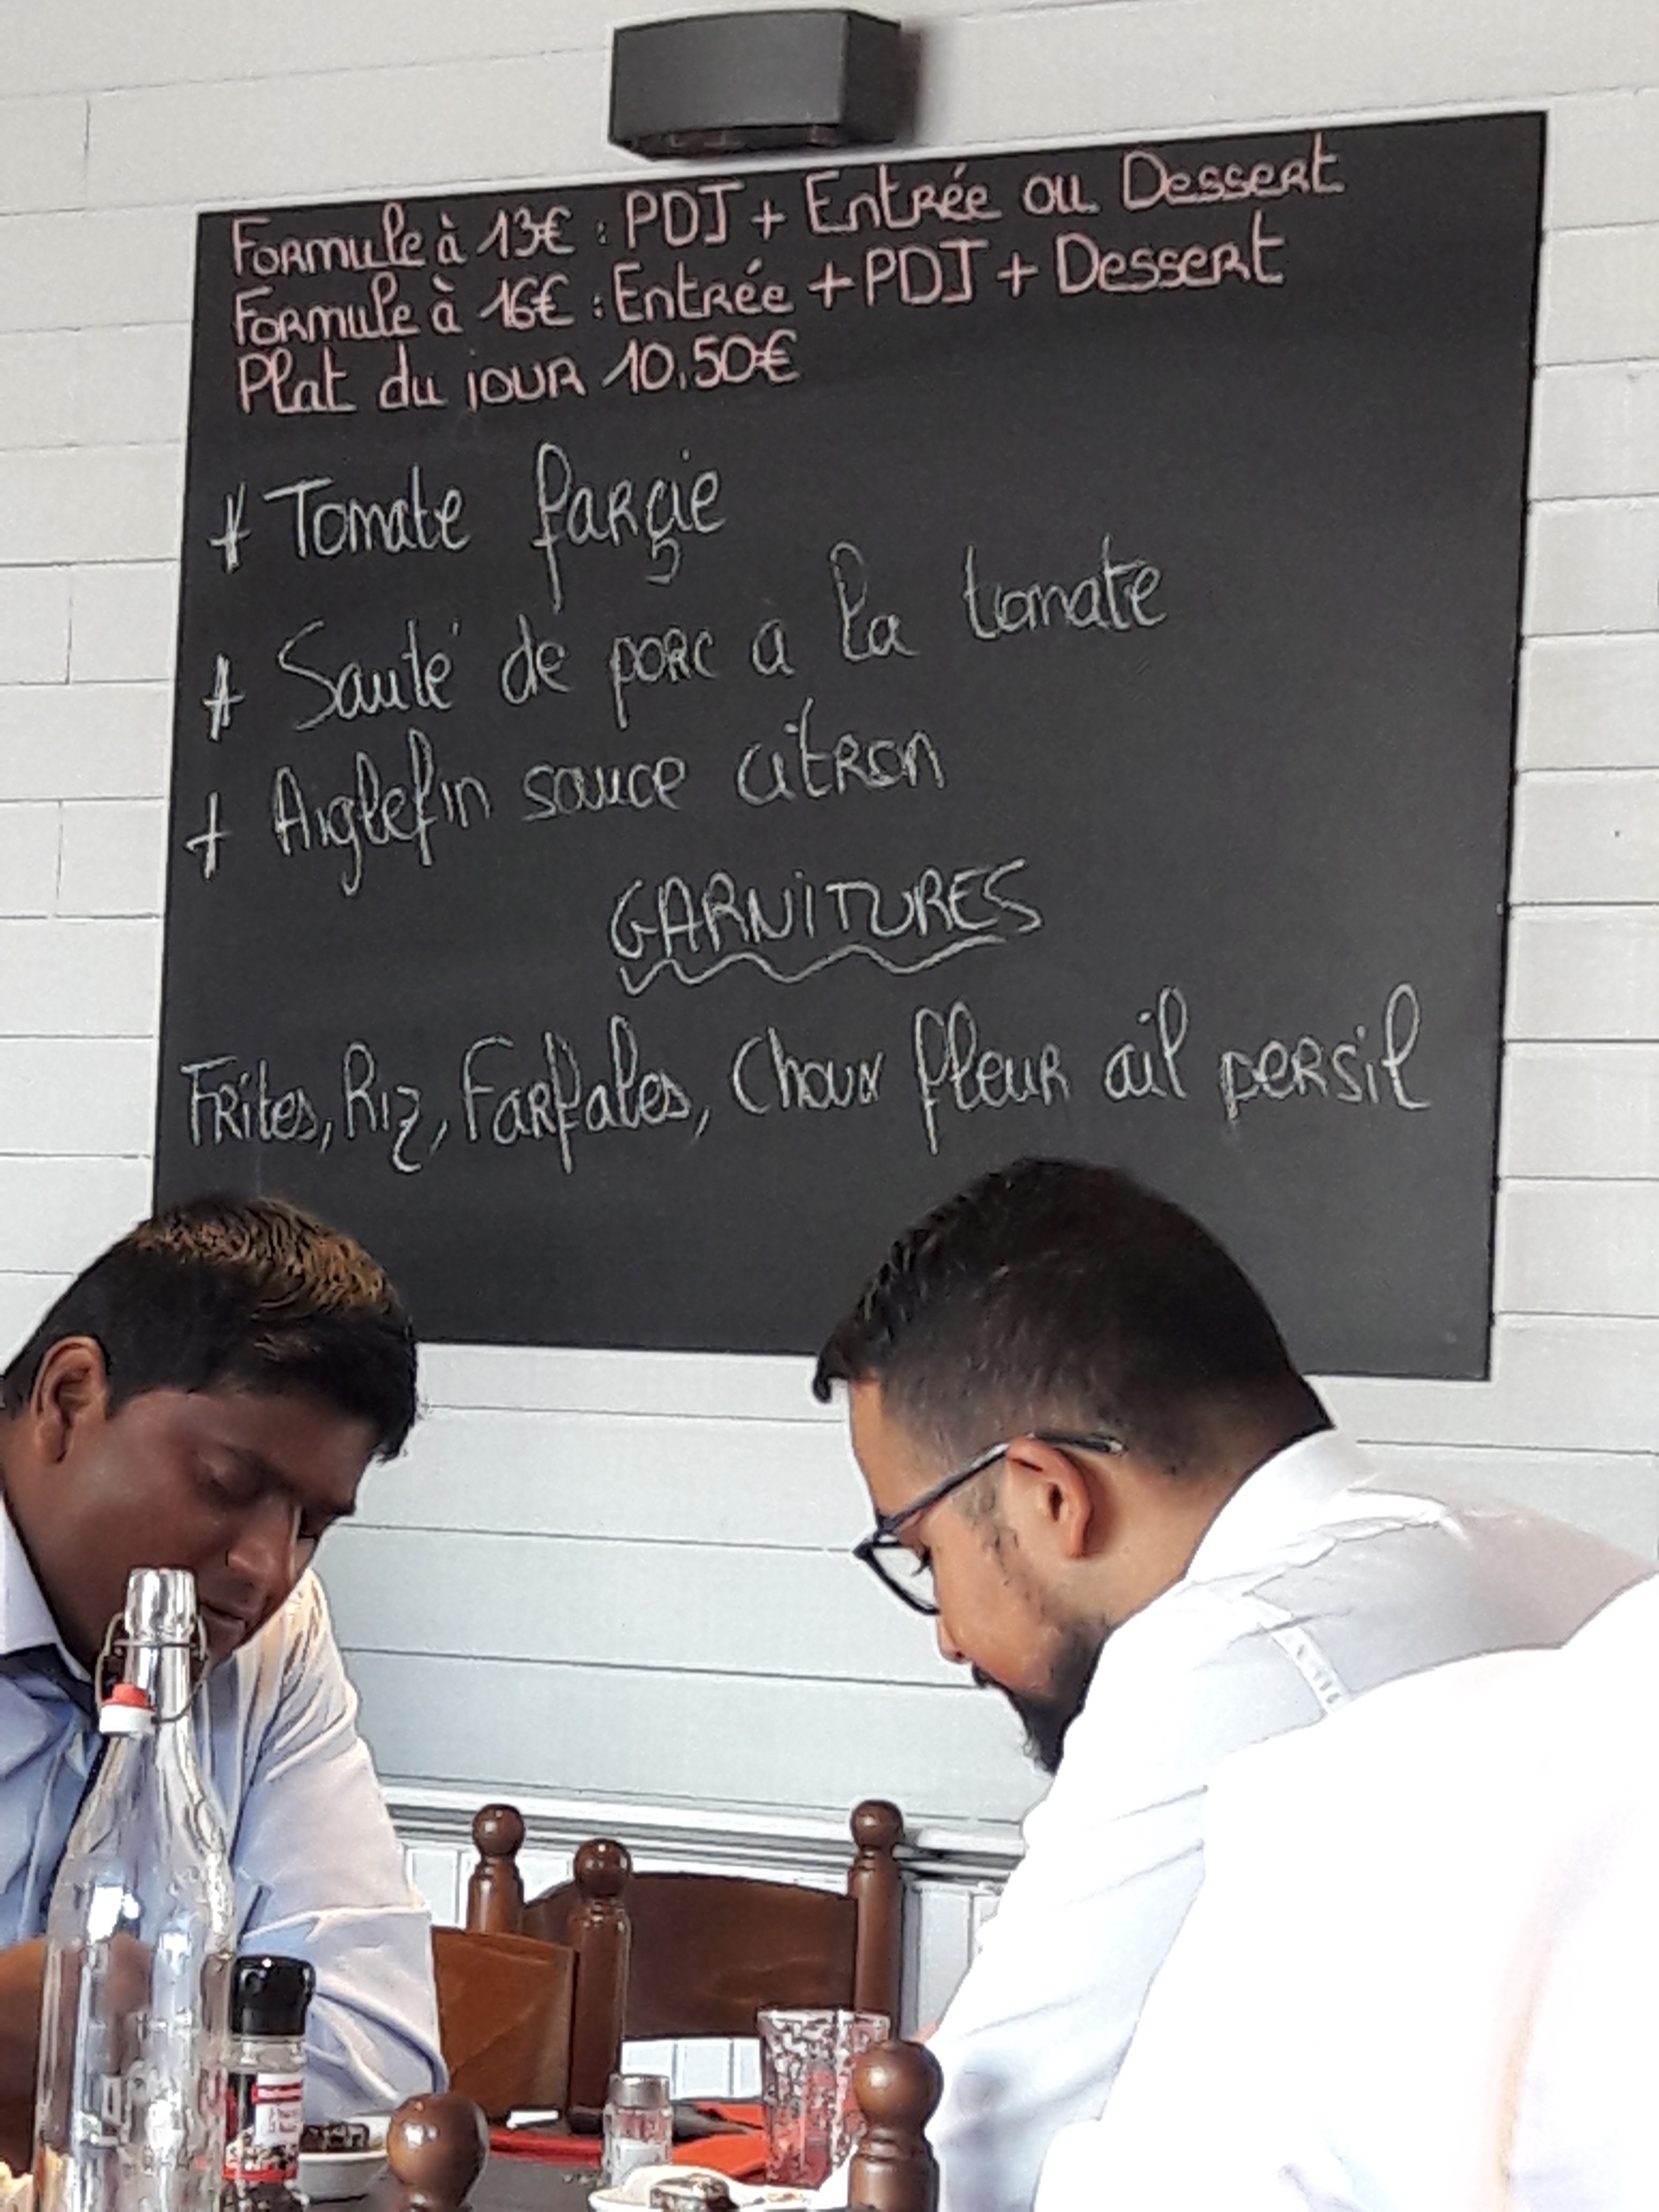 Formule à 13€ : PDJ + Entrée ou Dessert
Formule à 16€ : Entrée + PDJ + Dessert
Plat du jour 10.50€
* Tomate farçie
* Sauté de porc a la tomate
+ Aiglefin sauce citron
GARNITURES
Frites, Riz, Farfales, Choux fleur ail persil